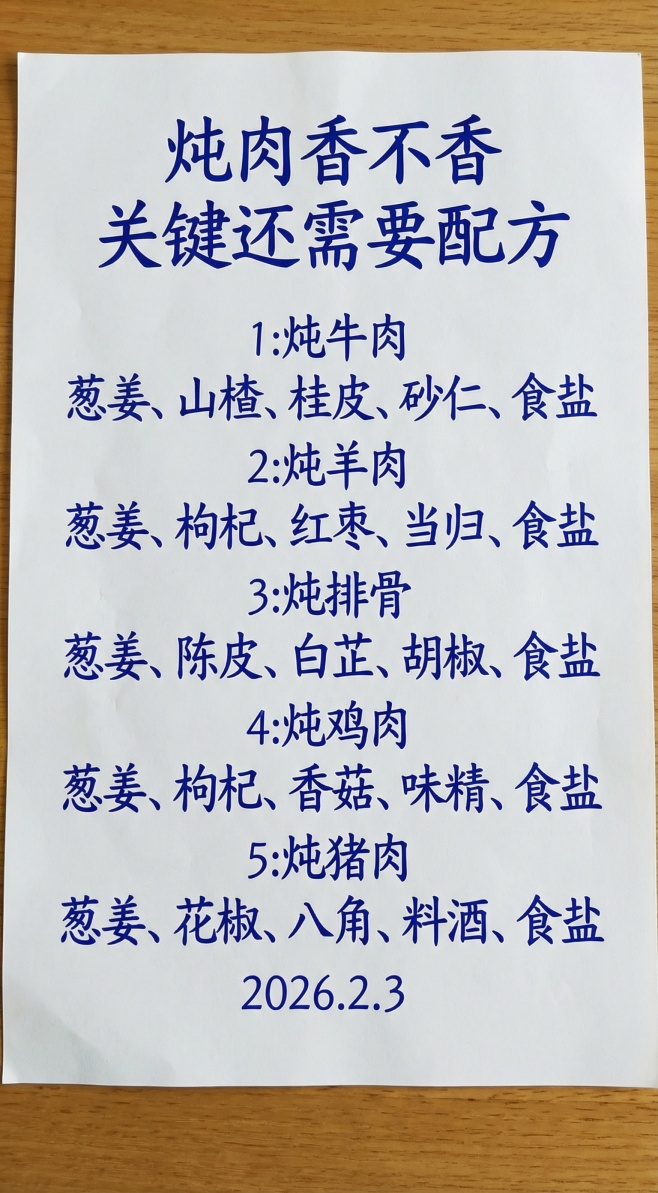 炖肉香不香
关键还需要配方
1:炖牛肉
葱姜、山楂、桂皮、砂仁、食盐
2:炖羊肉
葱姜、枸杞、红枣、当归、食盐
3:炖排骨
葱姜、陈皮、白芷、胡椒、食盐
4:炖鸡肉
葱姜、枸杞、香菇、味精、食盐
5:炖猪肉
葱姜、花椒、八角、料酒、食盐
2026.2.3